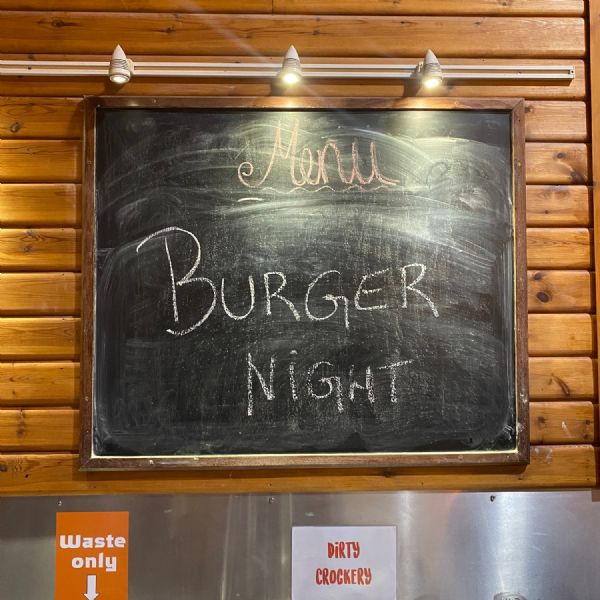 Menu
BURGER
NiGHT
Waste
only
DiRTY
CROCKERY